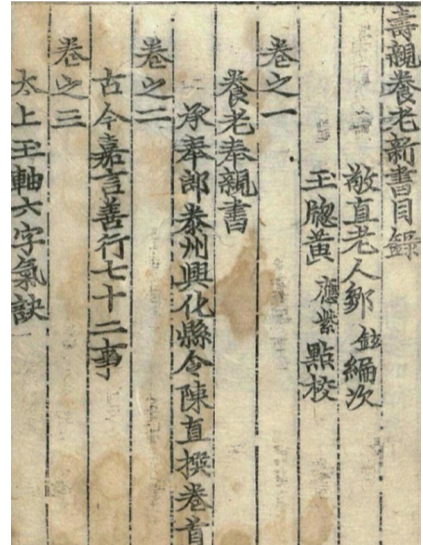 壽親養老新書目錄
敬直老人鄒 鉉編次
玉牕黃 應紫 點校
卷之一
養老奉親書
承奉郎泰州興化縣令陳直撰卷首
卷之二
古今嘉言善行七十二事
卷之三
太上玉軸六字氣訣